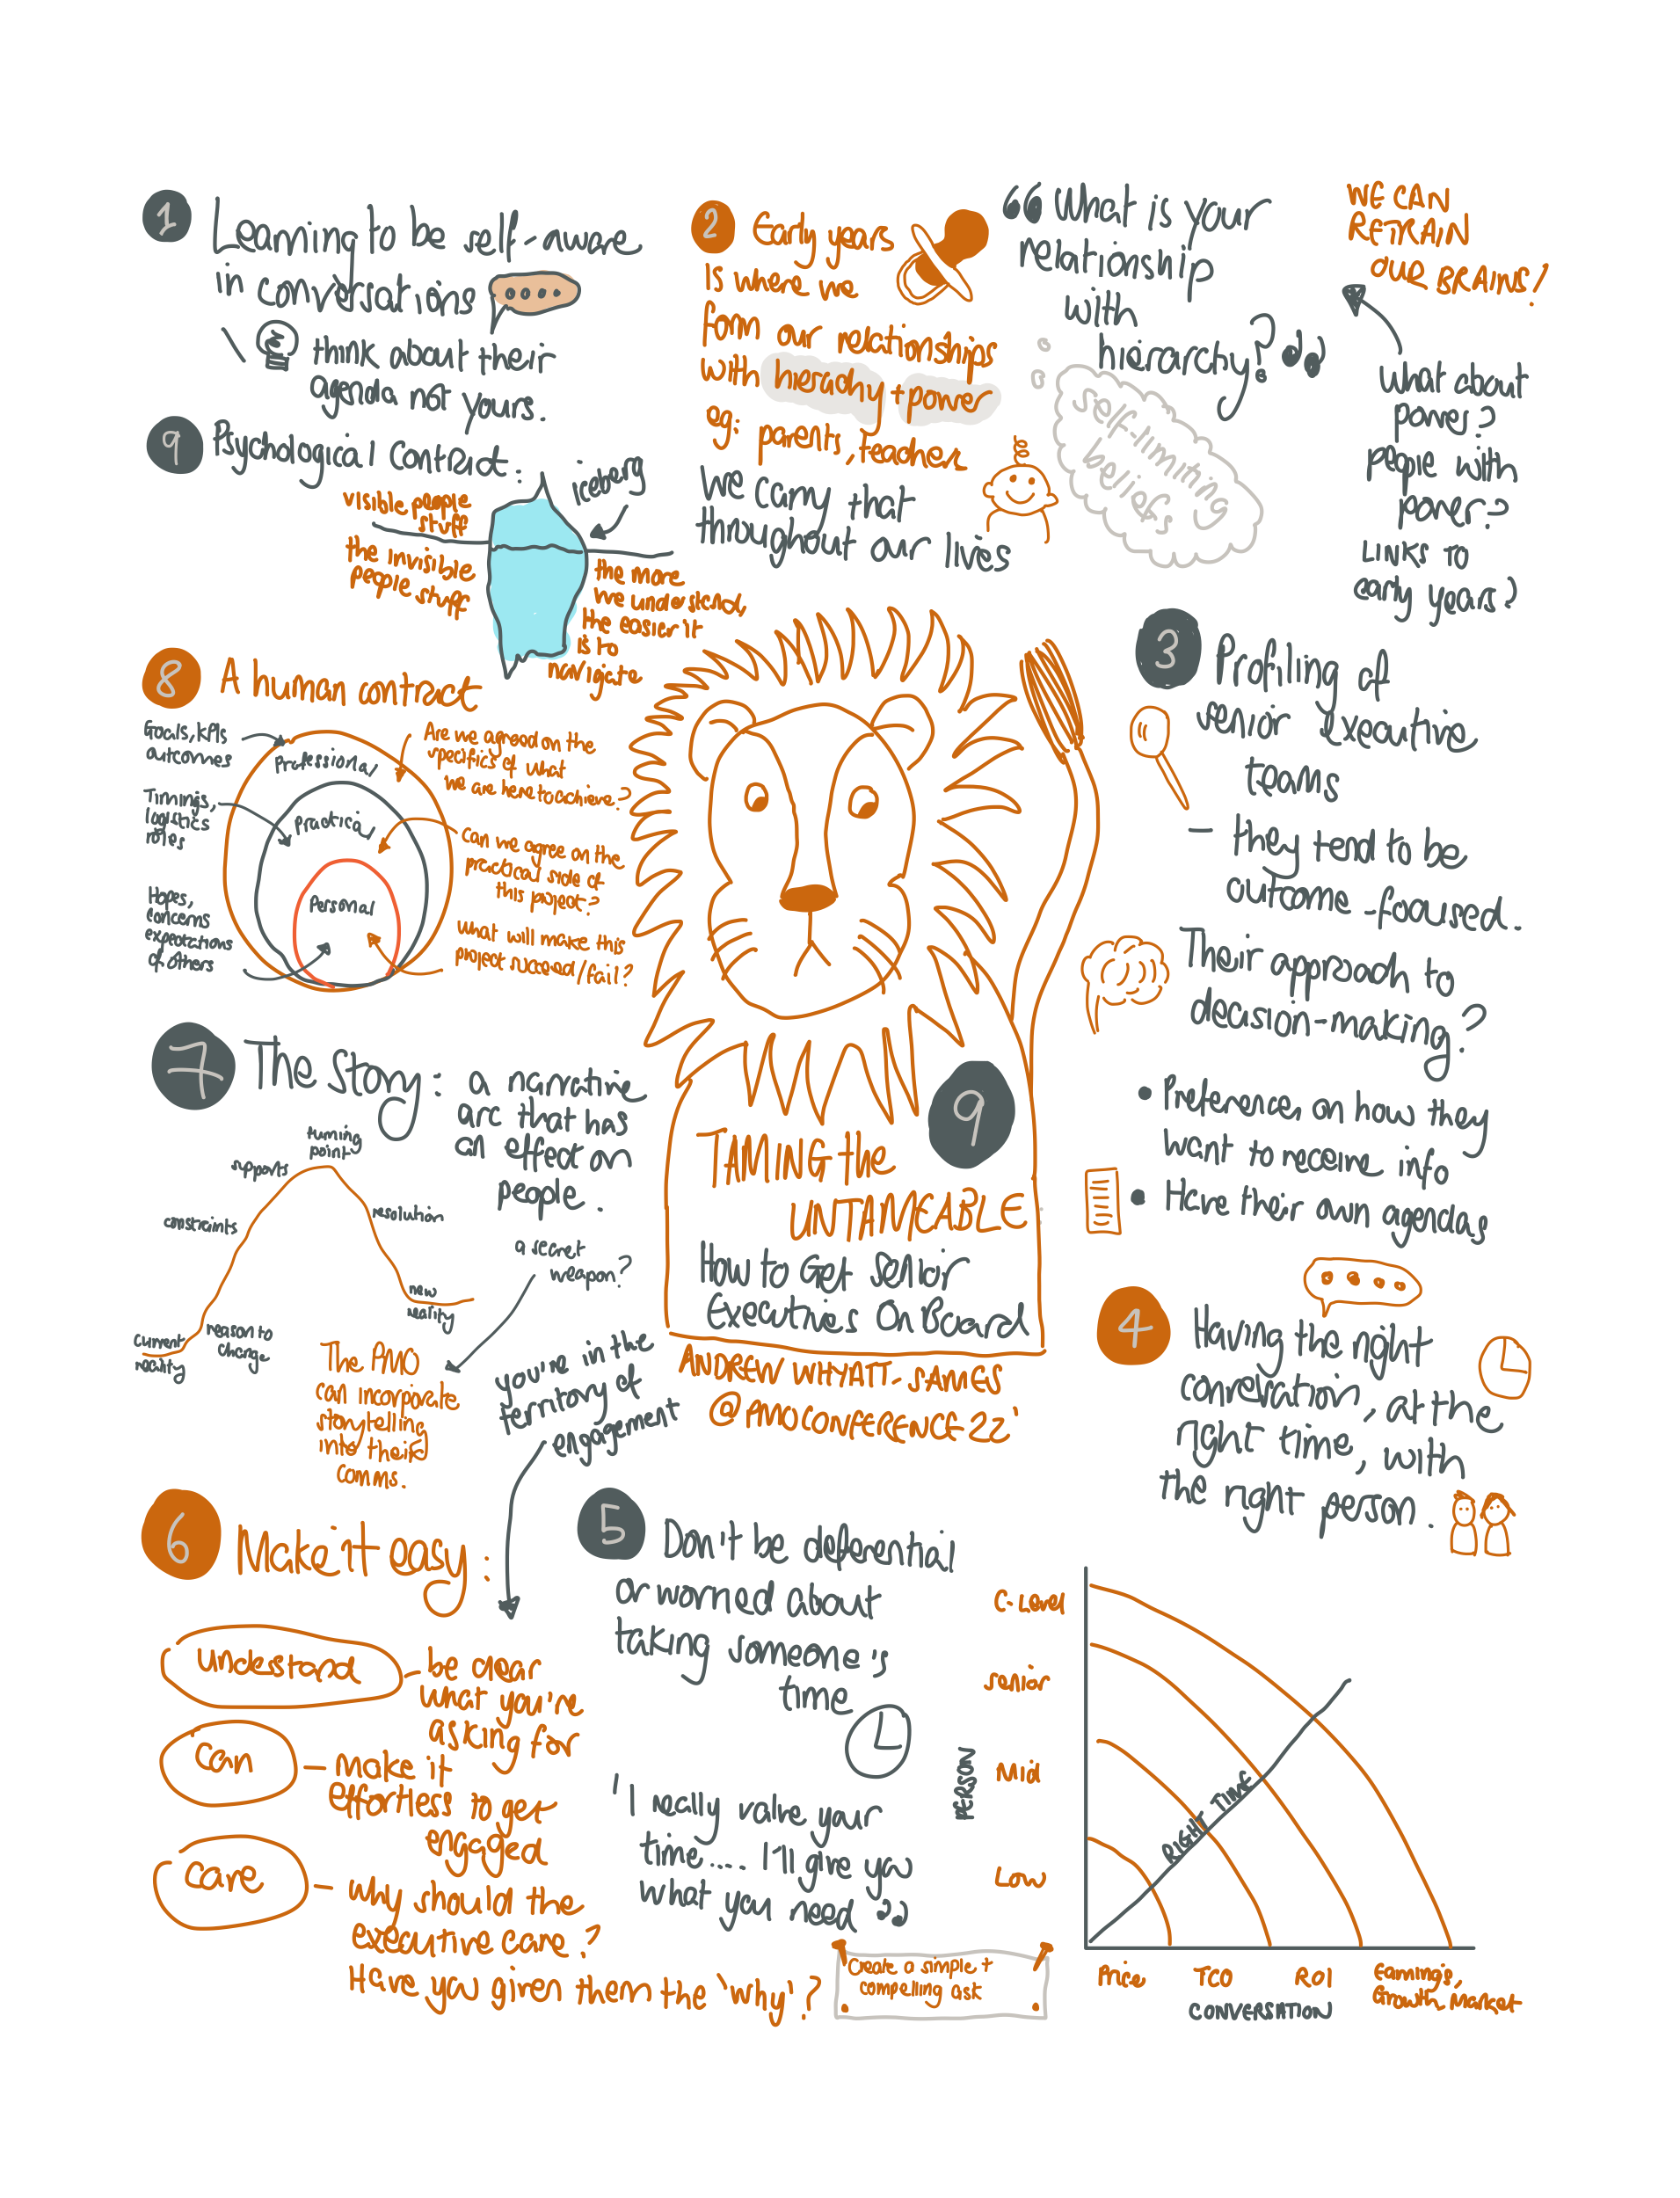 1 Learning to be self-aware
in conversations
think about their
agenda not yours.
2 Early years
is where we
form our relationships
with hierachy + power
eg: parents, teachers
We carry that
throughout our lives
“What is your
relationship
with
hierarchy?”
self-limiting
beliefs
WE CAN
RETRAIN
OUR BRAINS!
What about
power?
people with
power?
LINKS TO
early years?
3 Profiling of
senior executive
teams
– they tend to be
outcome-focused.
Their approach to
decision-making?
• Preferences on how they
want to receive info
• Have their own agendas
4 Having the right
conversation, at the
right time, with
the right person.
C-Level
Senior
Mid
Low
PERSON
RIGHT TIME
Price
TCO
ROI
Earnings,
Growth, Market
CONVERSATION
5 Don't be deferential
or worried about
taking someone's
time
'I really value your
time.... I'll give you
what you need”
Create a simple +
compelling ask
6 Make it easy:
understand – be clear
what you're
asking for
can – make it
effortless to get
engaged
care – why should the
executive care?
Have you given them the 'why'?
you're in the
territory of
engagement
7 The Story: a narrative
arc that has
an effect on
people.
current
reality
reason to
change
constraints
supports
turning
point
resolution
new
reality
a secret
weapon?
The PMO
can incorporate
storytelling
into their
comms.
8 A human contract
Goals, KPIs
outcomes
Timings,
logistics
roles
Hopes,
concerns
expectations
of others
Professional
Practical
Personal
Are we agreed on the
specifics of what
we are here to achieve?
Can we agree on the
practical side of
this project?
What will make this
project succeed/fail?
9 Psychological Contract:
visible people
stuff
the invisible
people stuff
iceberg
the more
we understand,
the easier it
is to
navigate
9
TAMING the
UNTAMEABLE
How to Get Senior
Executives On Board
ANDREW WHYATT-SAMES
@PMOCONFERENCE 22'